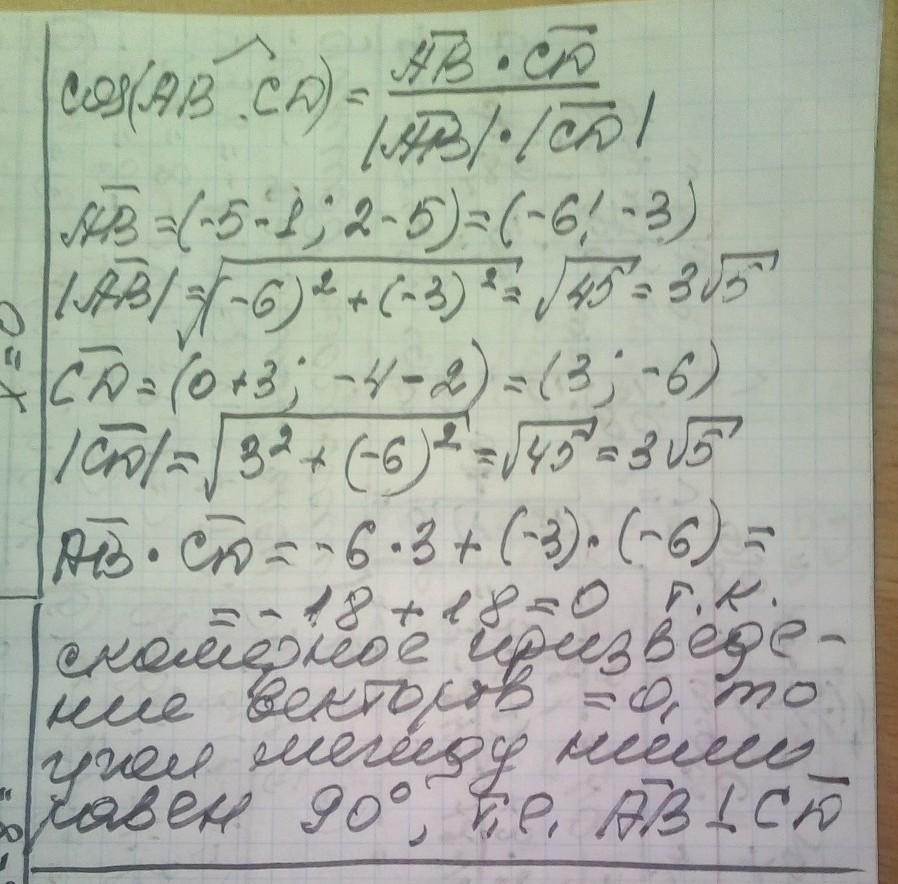 cos(AB^CD) = AB · CD / |AB| · |CD|
AB = (-5-1; 2-5) = (-6; -3)
|AB| = √(-6)² + (-3)² = √45 = 3√5
CD = (0+3; -4-2) = (3; -6)
|CD| = √3² + (-6)² = √45 = 3√5
AB · CD = -6 · 3 + (-3) · (-6) =
= -18 + 18 = 0 т.к.
скалярное произведе-
ние векторов = 0, то
угол между ними
равен 90°, т.е. AB ⊥ CD
x = 0